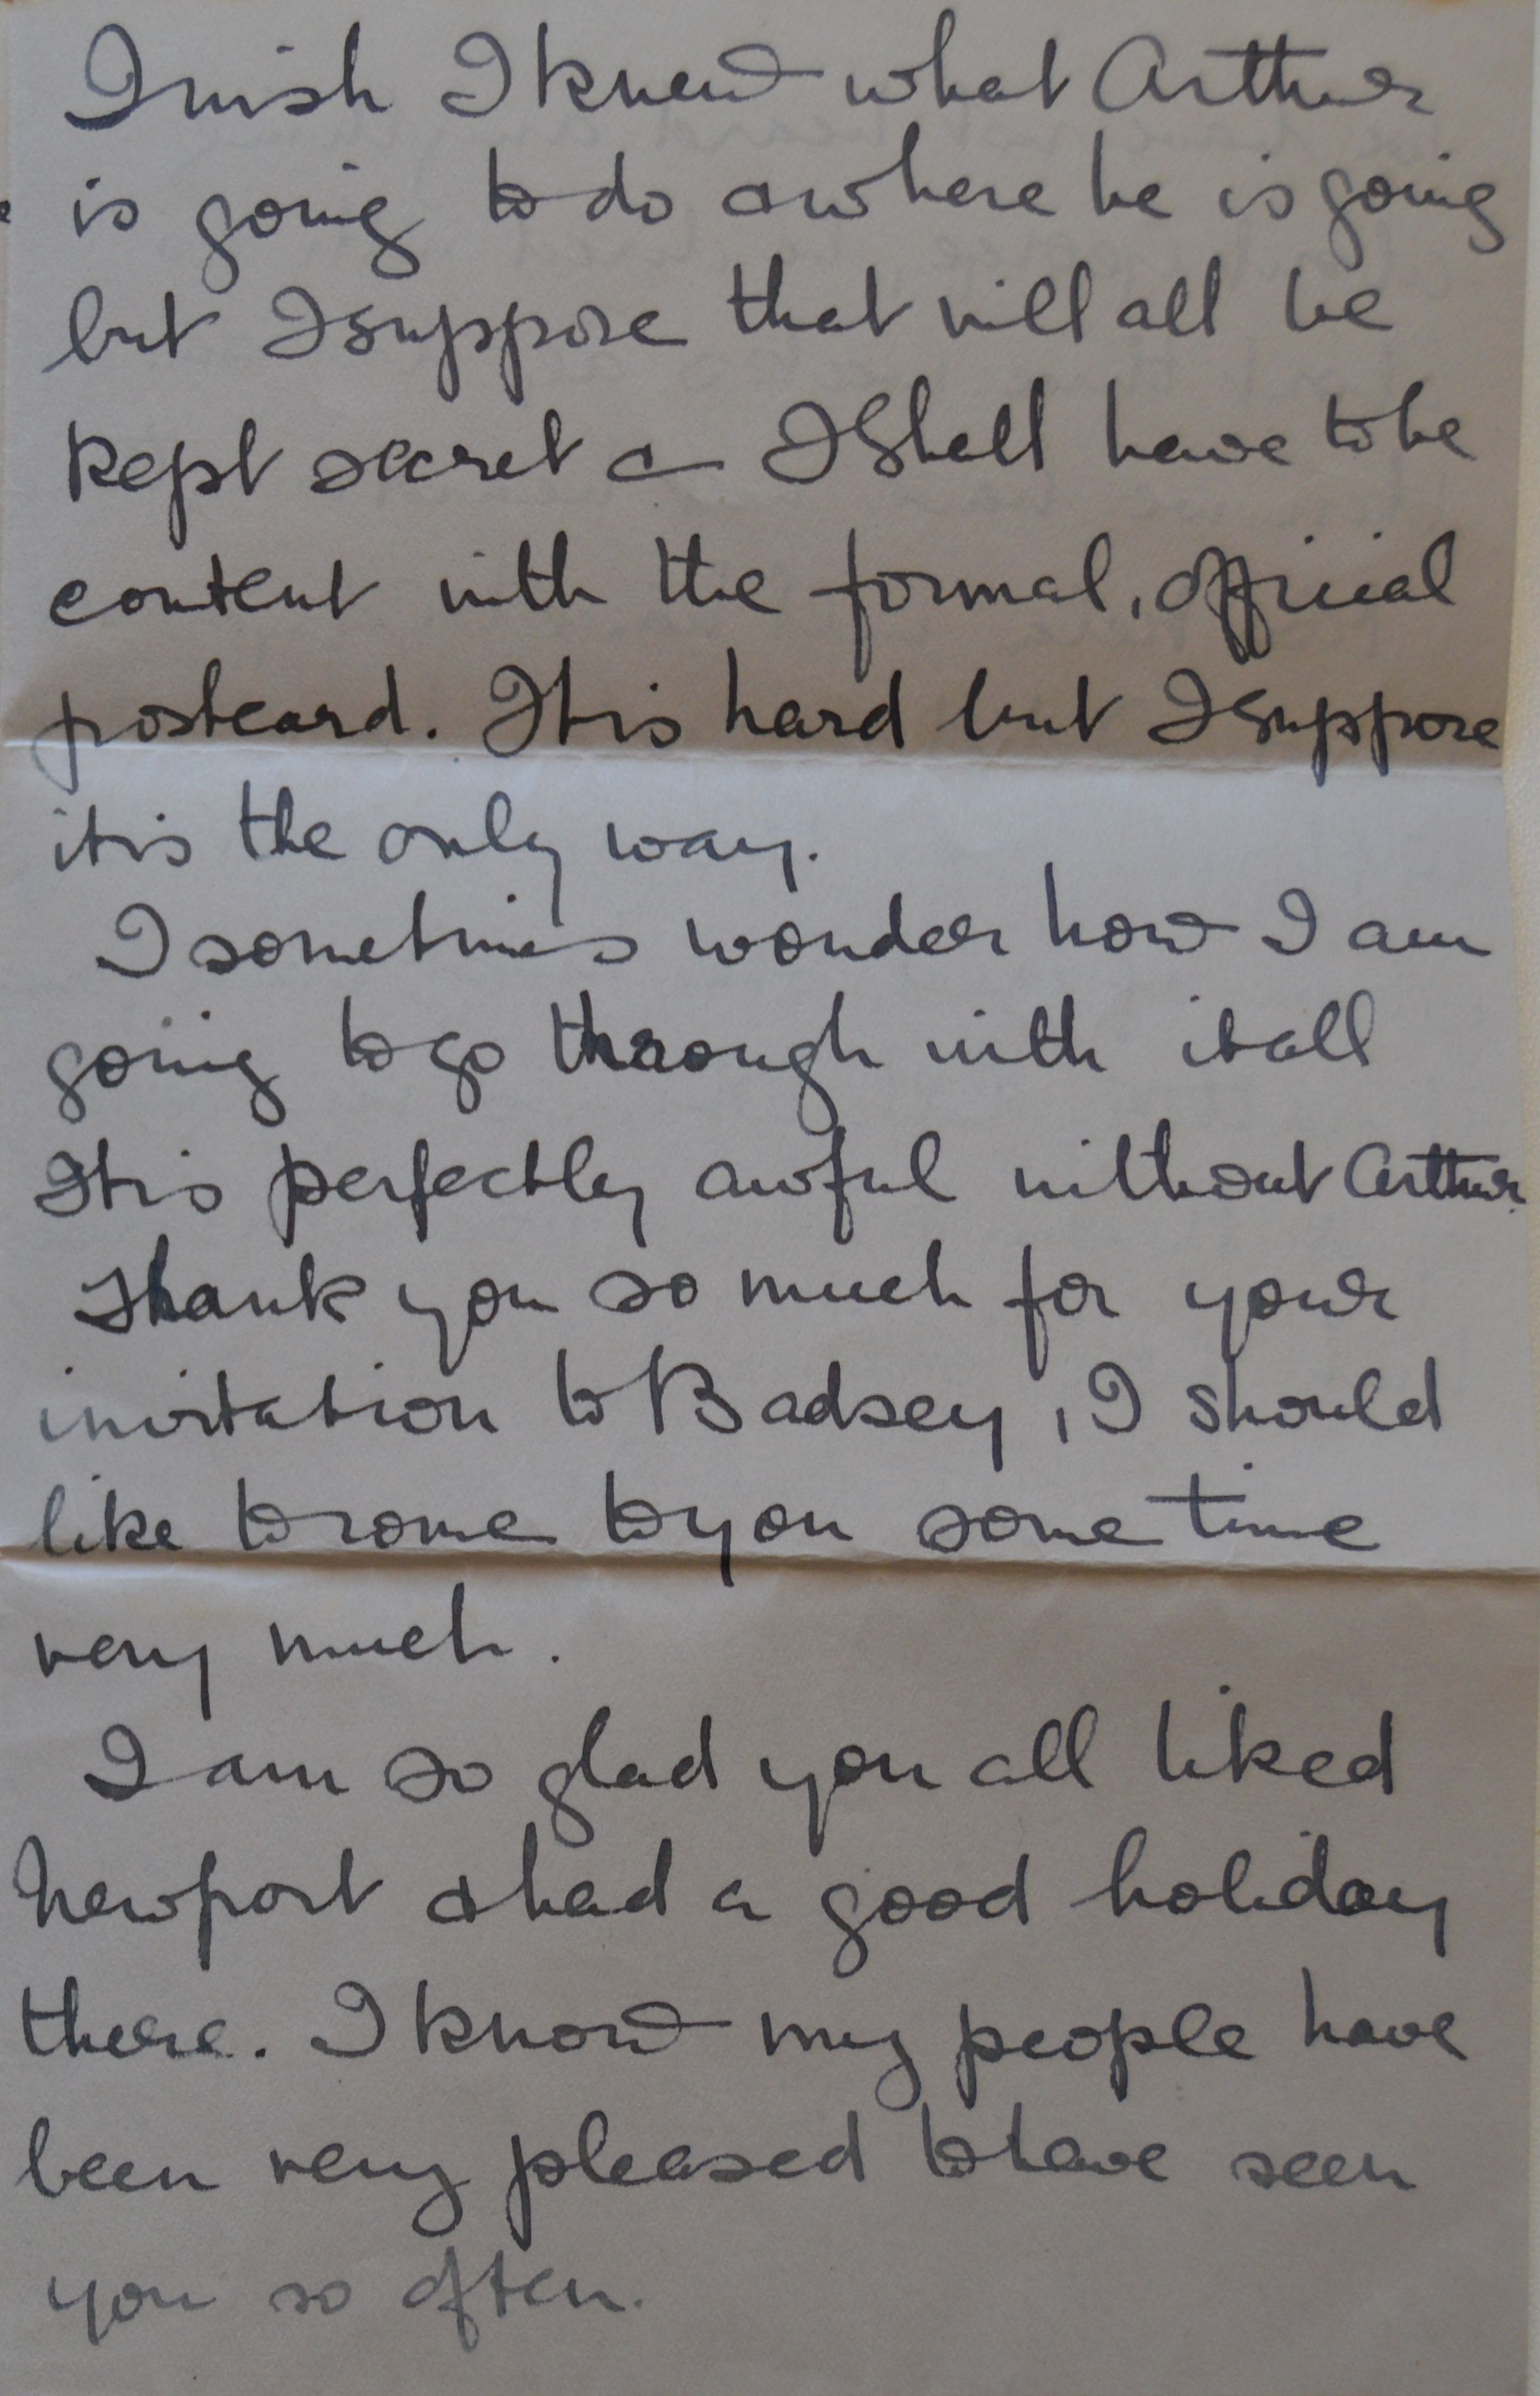 I wish I knew what Arthur
is going to do & where he is going
but I suppose that will all be
kept secret & I shall have to be
content with the formal, official
postcard. It is hard but I suppose
it is the only way.
I sometimes wonder how I am
going to go through with it all
It is perfectly awful without Arthur.
Thank you so much for your
invitation to Badsey, I should
like to come to you some time
very much.
I am so glad you all liked
Newport & had a good holiday
there. I know my people have
been very pleased to have seen
you so often.